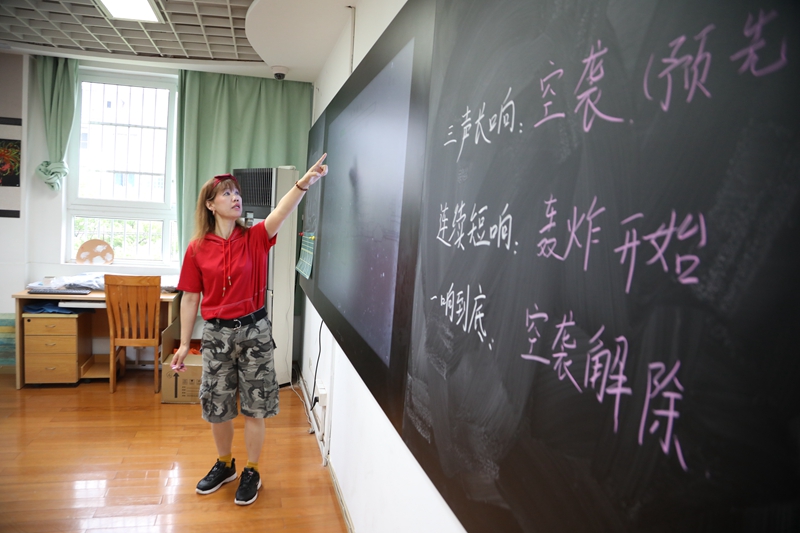 三声长响：空袭（预先
连续短响：轰炸开始
一响到底：空袭解除